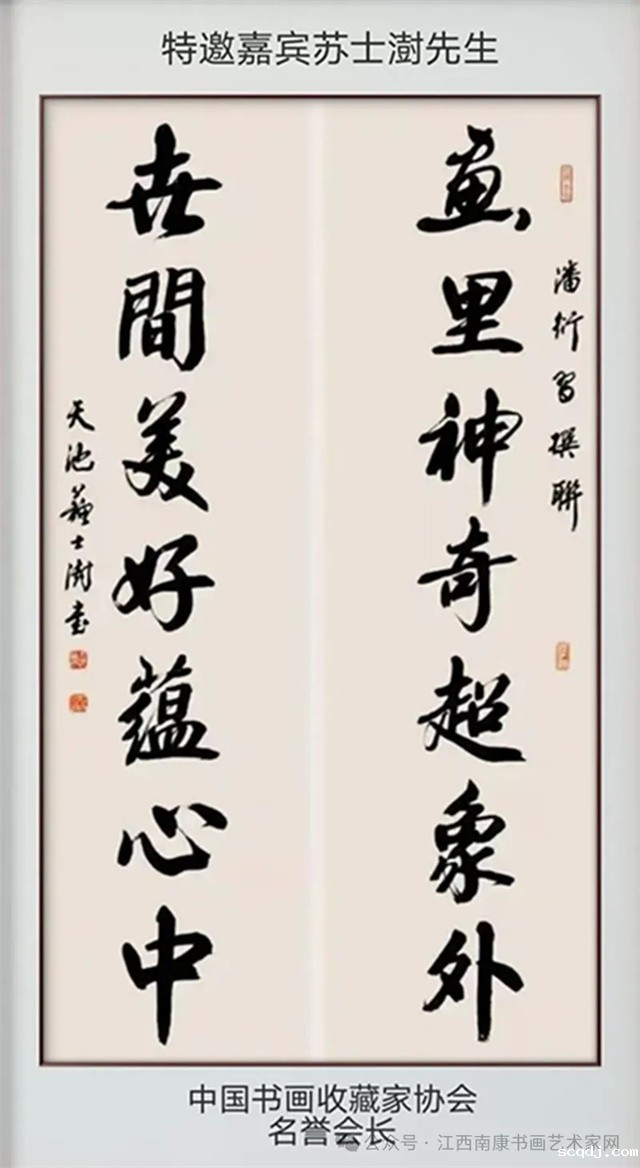 特邀嘉宾苏士澍先生
画里神奇超象外
潘衍習撰聯
世間美好蕴心中
天池蘇士澍书
中国书画收藏家协会
名誉会长
公众号·江西南康书画艺术家网
scqdj.com